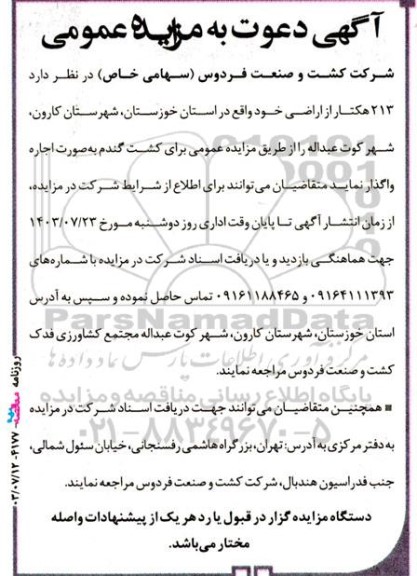 آگهی دعوت به مزایده عمومی
شرکت کشت و صنعت فردوس (سهامی خاص) در نظر دارد
۲۱۳ هکتار از اراضی خود واقع در استان خوزستان، شهرستان کارون،
شهر کوت عبداله را از طریق مزایده عمومی برای کشت گندم به‌صورت اجاره
واگذار نماید متقاضیان می‌توانند برای اطلاع از شرایط شرکت در مزایده،
از زمان انتشار آگهی تا پایان وقت اداری روز دوشنبه مورخ ۱۴۰۳/۰۷/۲۳
جهت هماهنگی بازدید و یا دریافت اسناد شرکت در مزایده با شماره‌های
۰۹۱۶۴۱۱۱۳۹۳ و ۰۹۱۶۱۱۸۸۴۶۵ تماس حاصل نموده و سپس به آدرس
ParsNamadData
استان خوزستان، شهرستان کارون، شهر کوت عبداله مجتمع کشاورزی فدک
کشت و صنعت فردوس مراجعه نمایند.
پایگاه اطلاع رسانی مناقصه و مزایده
■ همچنین متقاضیان می‌توانند جهت دریافت اسناد شرکت در مزایده
۰۲۱-۸۸۳۴۹۶۷۰-۵
به دفتر مرکزی به آدرس: تهران، بزرگراه هاشمی رفسنجانی، خیابان سئول شمالی،
جنب فدراسیون هندبال، شرکت کشت و صنعت فردوس مراجعه نمایند.
دستگاه مزایده گزار در قبول یا رد هر یک از پیشنهادات واصله
مختار می‌باشد.
روزنامه مناقصه ۴۱۷۷-۰۳/۰۷/۱۲